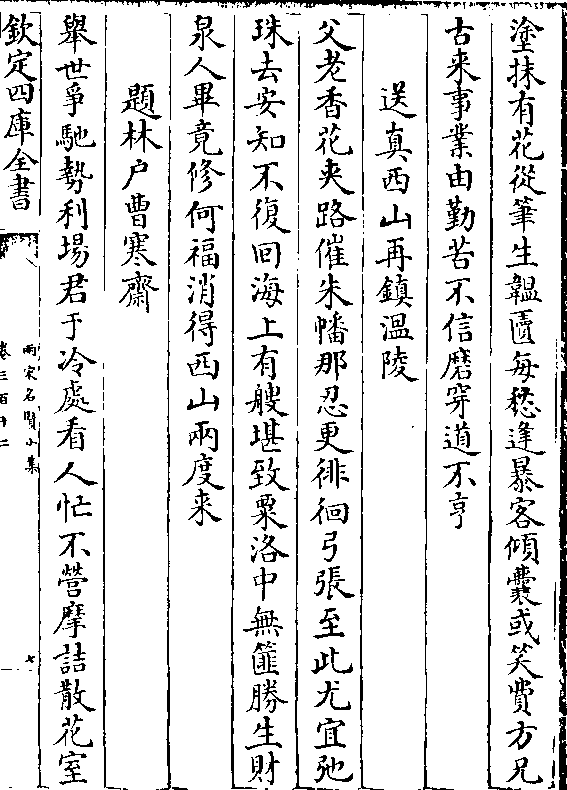 塗抹有花從筆生韞匵每愁逢暴客傾囊或笑費方兄
古来事業由勤苦不信磨穿道不亨
送真西山再鎮溫陵
父老香花夾路催朱幡那忍更徘徊弓張至此尤宜弛
珠去安知不復回海上有艘堪致粟洛中無篚勝生財
泉人畢竟修何福消得西山兩度来
題林户曹寒齋
舉世爭馳勢利場君于冷處看人忙不營摩詰散花室
欽定四庫全書
兩宋名賢小集
卷三百十二
七